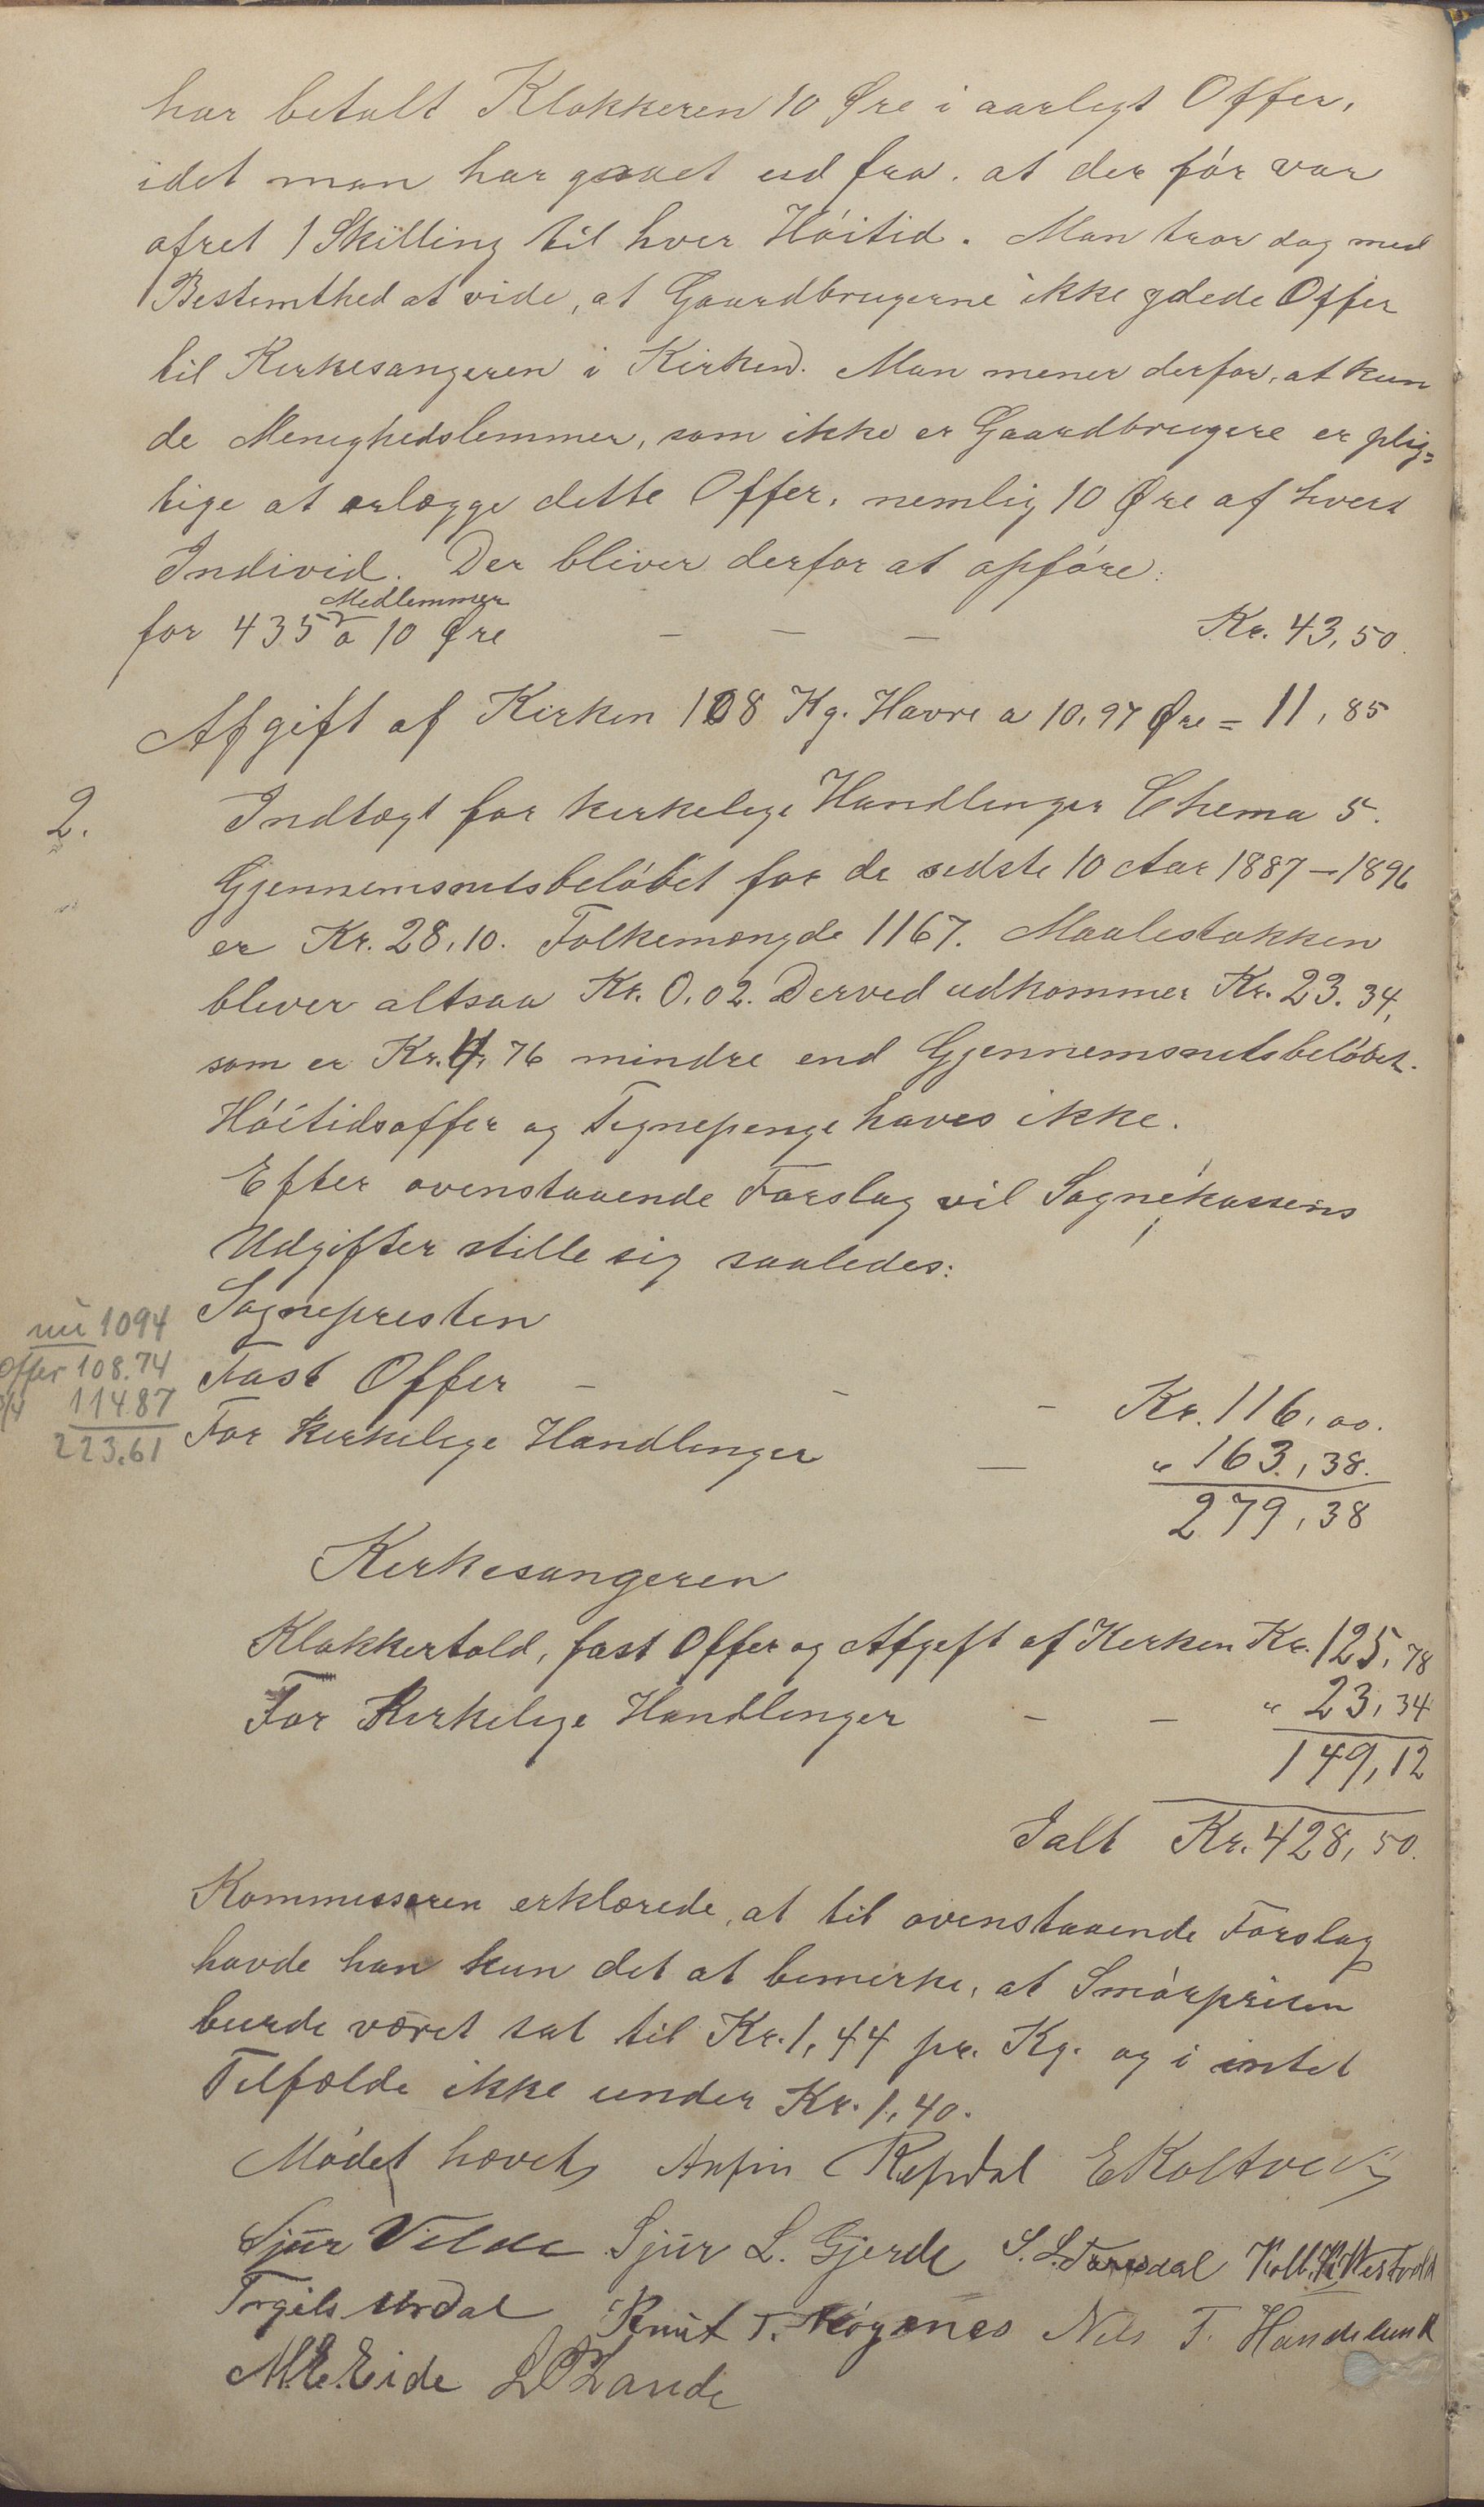 har betalt Klokkeren 10 Øre i aarligt Offer,
idet man har gaaet ud fra. at der før var
ofret 1 Skilling til hver Høitid. Man tror dog med
Bestemthed at vide, at Gaardbrugerne ikke ydede Offer
til Kirkesangeren i Kirken. Man mener derfor, at kun
de Menighedslemmer, som ikke er Gaardbrugere er plig=
tige at erlægge dette Offer, nemlig 10 Øre af hvert
Individ. Der bliver derfor at opføre:
Medlemmer
for 435 a 10 Øre — — — Kr. 43,50.
Afgift af Kirken 108 Kg. Havre a 10,97 Øre = 11,85
2. Indtægt for kirkelige Handlinger Chema 5.
Gjennemsnitsbeløbet for de sidste 10 Aar 1887–1896
er Kr. 28,10. Folkemængde 1167. Maalestokken
bliver altsaa Kr. 0,02. Derved udkommer Kr. 23.34,
som er Kr. 4,76 mindre end Gjennemsnitsbeløbet.
Høitidsoffer og Tegnepenge haves ikke.
Efter ovenstaaende Forslag vil Sognekassens
Udgifter stille sig saaledes:
Sognepresten
nu 1094
Offer 108.74
3/4 114.87
223.61
Fast Offer – – – Kr. 116,00.
For kirkelige Handlinger — " 163,38.
279,38
Kirkesangeren
Klokkertold, fast Offer og Afgift af Kirken Kr. 125,78
For Kirkelige Handlinger – – " 23,34
149,12
Ialt Kr. 428,50.
Kommissæren erklærede, at til ovenstaaende Forslag
havde han kun det at bemerke, at Smørprisen
burde været sat til Kr. 1,44 pr. Kg. og i intet
Tilfælde ikke under Kr. 1,40.
Mødet hævet, Anfin Refsdal E Koltveit
Sjur Velde Sjur L. Gjerde S. L. Kolb.
Torgils Urdal Knut T. Nils T. Handeland
M. E. Eide L Lande